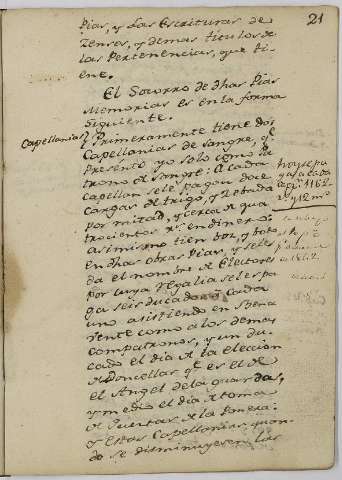 21
Pias, y Las Escrituras de
Zensos, y demas titulos de
las Pertenencias, que ti-
ene.
El Socorro de dhas Pias
Memorias es en la forma
Siguiente.
Capellanias
Primeramente tiene dos
Capellanias de sangre, q.e
Presento yo solo como Pa-
trono de sangre: A cada
Capellan se le pagan doce
cargas de trigo, y zebada
por mitad, y cerca de qua-
trocientos r.s en dinero:
asimismo tien voz, y voto
en dhas obras Pias, y se le
da el nombre de Electores
por cuya regalia se les pa-
ga seis ducados a cada
uno asistiendo en
rente como a los demas
compatronos, y un du-
cado el dia de la eleccion
de Doncellas q.e es el de
el Angel de la guarda,
y medio el dia de toma
de Cuentas de la
y estas Capellanias, quan-
do se disminuyeren las
hoy se pa
ga a cada
1162
r.s y 12 m.s